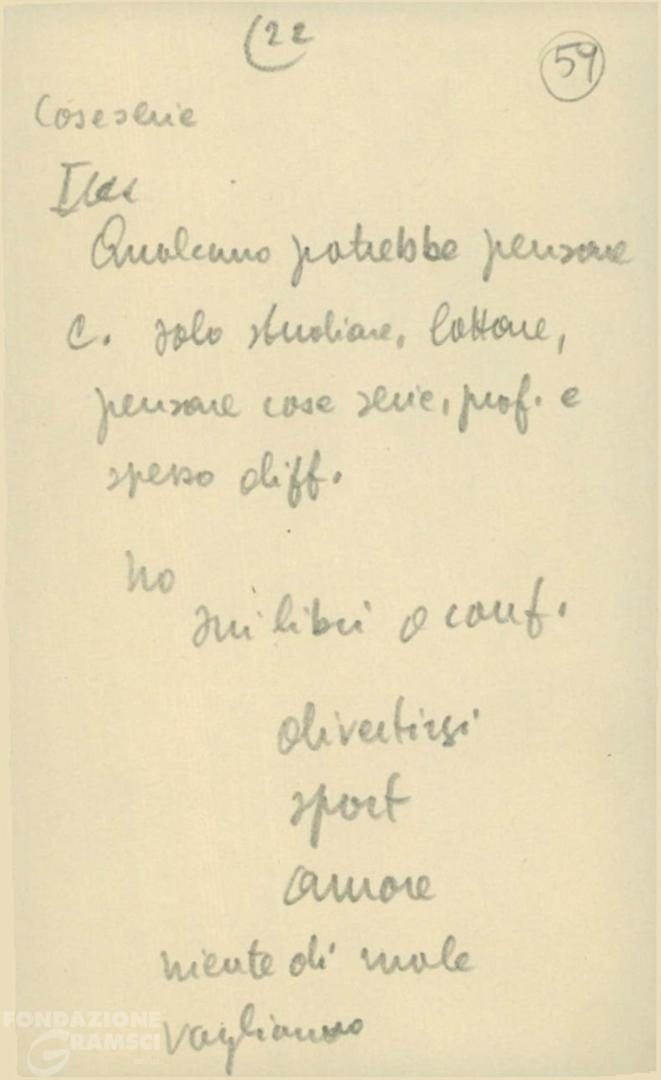 22
59
Cose serie
Qualcuno potrebbe pensare
C. solo studiare, lottare,
pensare cose serie, prof. e
spesso diff.
no
sui libri o conf.
divertirsi
sport
amore
niente di male
vogliamo
FONDAZIONE
GRAMSCI